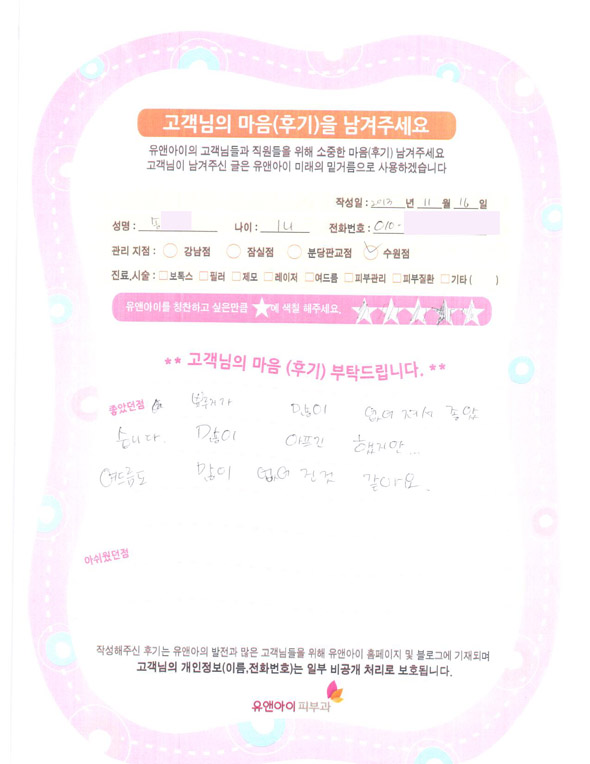 고객님의 마음(후기)을 남겨주세요
유앤아이의 고객님들과 직원들을 위해 소중한 마음(후기) 남겨주세요
고객님이 남겨주신 글은 유앤아이 미래의 밑거름으로 사용하겠습니다
작성일 : 2013 년 11 월 16 일
성명 : 나이 : 전화번호 : 010-
관리 지점 : 강남점 잠실점 분당판교점 수원점
진료,시술 : 보톡스 필러 제모 레이저 여드름 피부관리 피부질환 기타 ( )
유앤아이를 칭찬하고 싶은만큼 ★에 색칠 해주세요.
** 고객님의 마음 (후기) 부탁드립니다. **
좋았던점 많이 없어 져서 좋았
습니다. 많이 아프긴 했지만...
여드름도 많이 없어 진것 같아요.
아쉬웠던점
작성해주신 후기는 유앤아의 발전과 많은 고객님들을 위해 유앤아이 홈페이지 및 블로그에 기재되며
고객님의 개인정보(이름,전화번호)는 일부 비공개 처리로 보호됩니다.
유앤아이 피부과